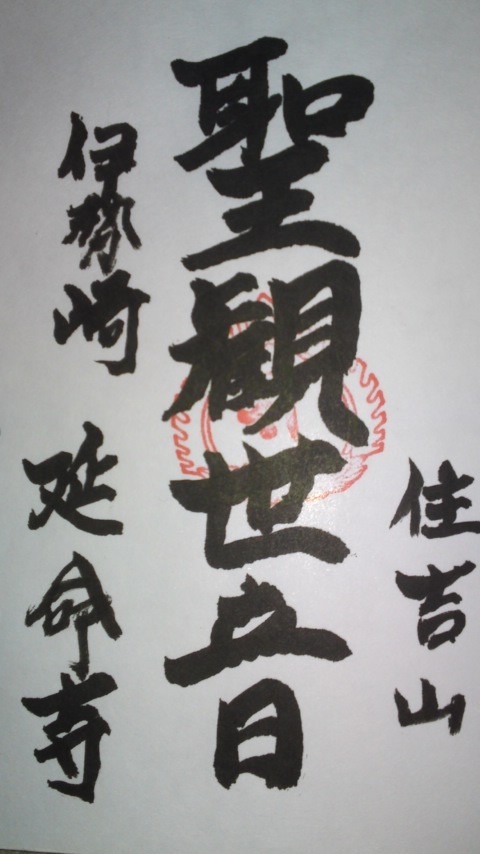 住吉山
聖観世音
伊勢崎 延命寺